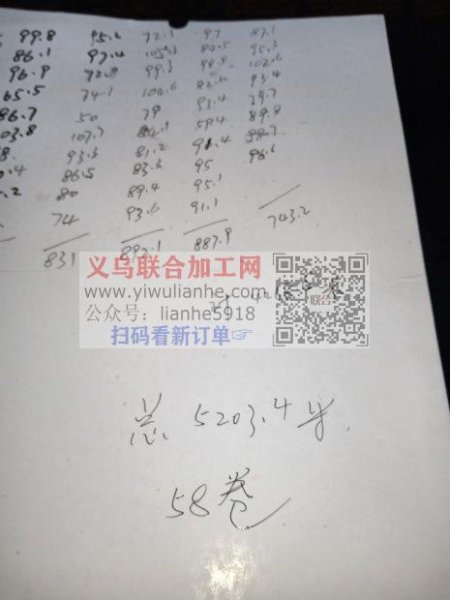 99.8 95.2 72.3 97 87.1
86.1 97.4 105.3 84.5 95.3
96.9 99.3 98.8 102.6
65.5 74.1 104.6 93.4
86.7 50 79 93.4 79.7
03.8 107.7 59.4 89.8
93.3 81.2 91.4 88.7
86.5 83.3 95 96.6
80 89.4 95.1
74 93.6 91.1 743.2
831 897.1 887.9
义乌联合加工网
www.yiwulianhe.com
公众号：lianhe5918
扫码看新订单☞
联合
总 5203.4 米
58卷